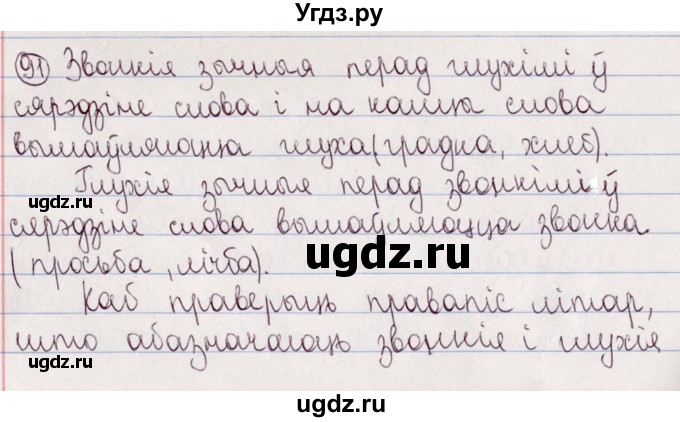 Угдз.ру
91 Звонкія зычныя перад глухімі ў
сярэдзіне слова і на канцы слова
вымаўляюцца глуха (градка, хлеб).
Глухія зычныя перад звонкімі ў
сярэдзіне слова вымаўляюцца звонка
(просьба, лічба).
ugdz.ru
Каб праверыць правапіс літар,
што абазначаюць звонкія і глухія
ugdz.ru
ugdz.ru
ugdz.ru